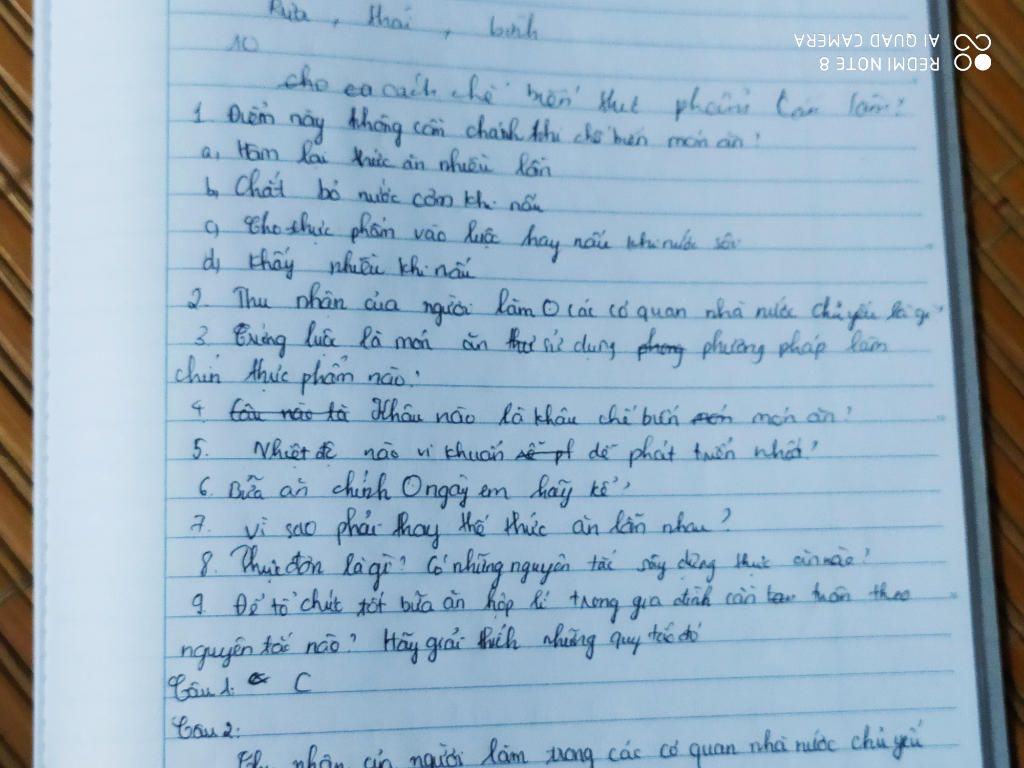 Rửa, thái, bình
10
REDMI NOTE 8
AI QUAD CAMERA
cho ea cách chế biến thực phẩm
1 Điểm này không cần chánh khi chế biến món ăn?
a, Hâm lại thức ăn nhiều lần
b, Chắt bỏ nước cơm khi nấu
c) Cho thực phẩm vào luộc hay nấu khi nước sôi
d, Khấy nhiều khi nấu
2. Thu nhân của người làm O các cơ quan nhà nước chủ yếu là gì
3. Trứng luộc là món ăn sử dụng phương pháp làm
chín thực phẩm nào?
4 Câu nào là Khâu nào là khâu chế biến món ăn?
5. Nhiệt độ nào vi khuẩn dễ phát triển nhất?
6. Bữa ăn chính O ngày em hãy kể?
7. Vì sao phải thay thế thức ăn lẫn nhau?
8. Thực đơn là gì? Có những nguyên tắc xây dựng thực đơn nào?
9. Để tổ chức tốt bữa ăn hợp lí trong gia đình cần tuân theo
nguyên tắc nào? Hãy giải thích những quy tắc đó
Câu 1: C
Câu 2:
Thu nhân của người làm trong các cơ quan nhà nước chủ yếu